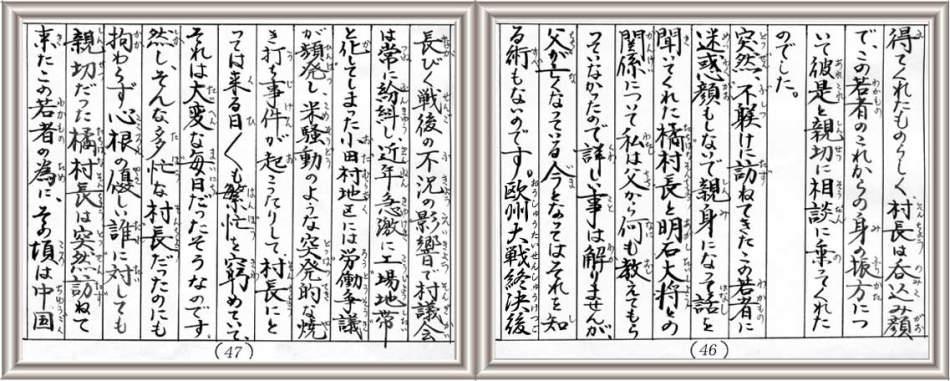 得てくれたものらしく、村長は呑込み顔
で、この若者のこれからの身の振方につ
いて彼是と親切に相談に乗ってくれた
のでした。
突然、不躾に訪ねてきたこの若者に
迷惑顔もしないで親身になって話を
聞いてくれた橘村長と明石大将との
関係について私は父から何も教えてもら
っていなかったので詳しい事は解りませんが、
父が亡くなっている今となってはそれを知
る術もないのです。欧州大戦終決後
(46)
長びく戦後の不況の影響で村議会
は常に紛糾し近年急激に工場地帯
と化してしまった小田村地区には労働争議
が頻発し米騒動のような突発的な焼
き打ち事件が起こったりして村長にと
っては来る日〱も繁忙を窮めていて、
それは大変な毎日だったそうなのです
然し、そんな多忙な村長だったのにも
拘わらず心根の優しい誰に対しても
親切だった橘村長は突然訪ねて
来たこの若者の為に、その頃は中国
(47)